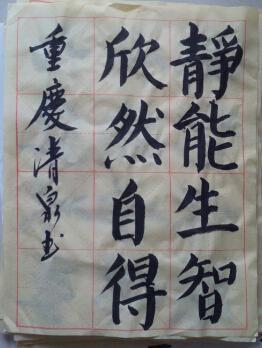 靜能生智
欣然自得
重慶清泉书